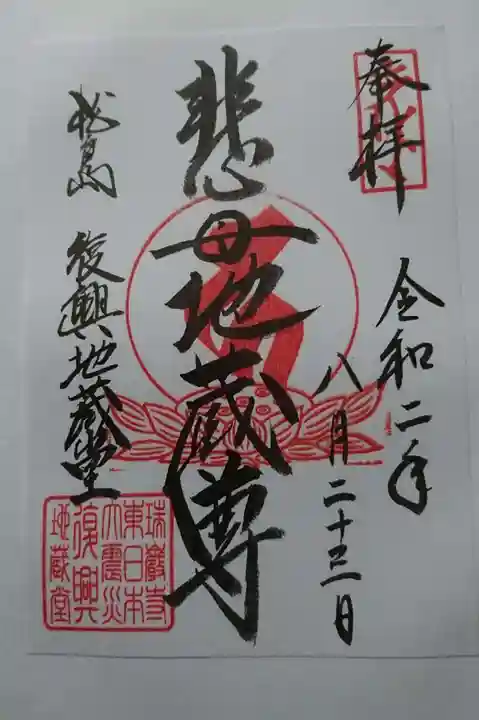 奉拝
令和二年
八月二十三日
悲母地蔵尊
松島 復興地蔵堂
瑞巌寺
東日本
大震災
復興
地蔵堂